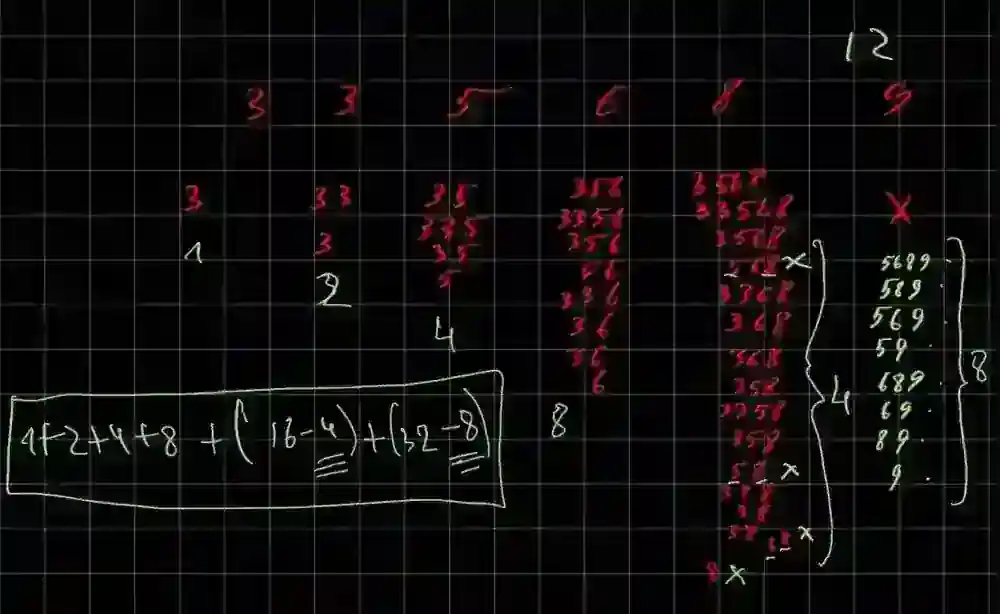 12
3 3 5 6 8 9
3 33 35 356 3568 X
335 3356 33568
1 3 35 356 3568 5689
5 56 568 X 589
2 336 3368 569
4 36 368 59
36 368 689
6 358 4 69 8
1+2+4+8 + (16-4)+(32-8) 8 3358 89
358 9
58 X
338
38
58 X
8 X